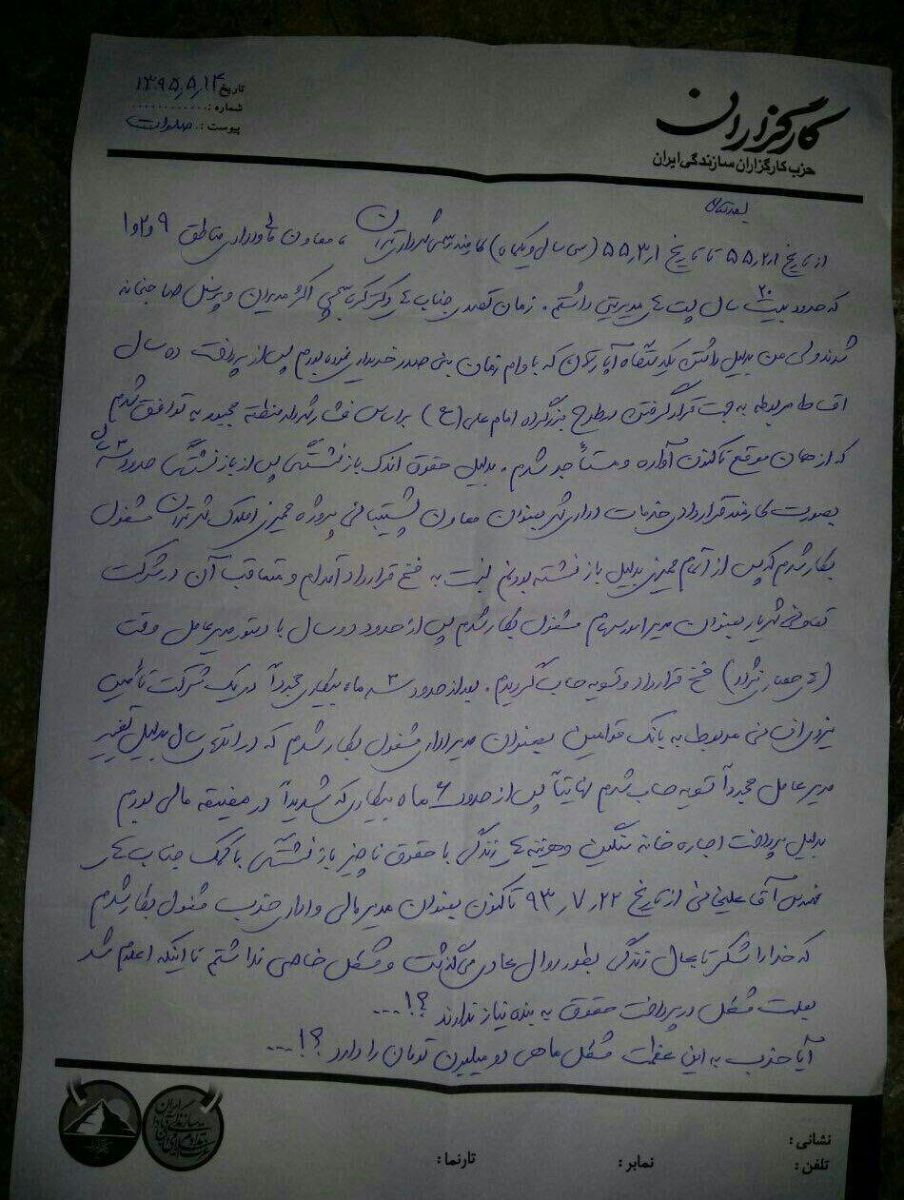 کارگزاران
حزب کارگزاران سازندگی ایران
تاریخ ۱۳۹۵٫۵٫۱۴
شماره : ............
پیوست : صلوات
بسمه‌تعالی
از تاریخ ۵۵٫۲٫۱ تا تاریخ ۵۵٫۳٫۱ (سی سال و یکماه) کارمند رسمی شهرداری تهران معاون اداری مناطق ۹ و ۲ و ۱
که حدود بیست ۲۰ سال پست های مدیریتی داشتم. زمان تصدی جناب های دکتر کرباسچی اکثر مدیران و پرسنل صاحبخانه
شدند ولی من بدلیل داشتن یکدستگاه آپارتمان که با وام زمان بنی صدر خریداری نموده بودم پس از پرداخت ده سال
اقساط مربوطه به جهت قرار گرفتن در طرح بزرگراه امام علی (ع) بر اساس فشار شهردار منطقه مجبور به توافق شدم
که از همان موقع تاکنون آواره و مستأجر شدم. بدلیل حقوق اندک بازنشستگی پس از بازنشستگی حدود سه ۳ سال
بصورت کارمند قراردادی خدمات اداری شهر بعنوان معاون پشتیبانی پروژه ممیزی املاک شهر تهران مشغول
بکار شدم که پس از اتمام ممیزی بدلیل بازنشسته بودنم نسبت به فسخ قرارداد اقدام و متعاقب آن در شرکت
تعاونی شهریار بعنوان مدیر امور سهام مشغول بکار شدم پس از حدود دو سال با دستور مدیر عامل وقت
فسخ قرارداد و تسویه حساب گردیدم. بعد از حدود سه ۳ ماه بیکاری مجدداً در یک شرکت تأمین
نیروی انسانی مربوط به بانک قوامین بعنوان مدیر اداری مشغول بکار شدم که در انتهای سال بدلیل تغییر
مدیر عامل مجدداً تسویه حساب شدم نهایتاً پس از حدود ۶ ماه بیکاری که شدیداً در مضیقه مالی بودم
بدلیل پرداخت اجاره خانه سنگین و هزینه های زندگی با حقوق ناچیز بازنشستگی با کمک جناب های
مهندس آقا علیخانی از تاریخ ۹۳٫۷٫۲۲ تاکنون بعنوان مدیر مالی و اداری حزب مشغول بکار شدم
که خدا را شکر تا بحال زندگی بطور روال عادی می گذشت و مشکل خاصی نداشتم تا اینکه اعلام شد
بعلت مشکل در پرداخت حقوق به بنده نیاز ندارند ؟!...
آیا حزب به این عظمت مشکل ماهی دو میلیون تومان را دارد ؟!...
نشانی :
تلفن :
نمابر :
تارنما :